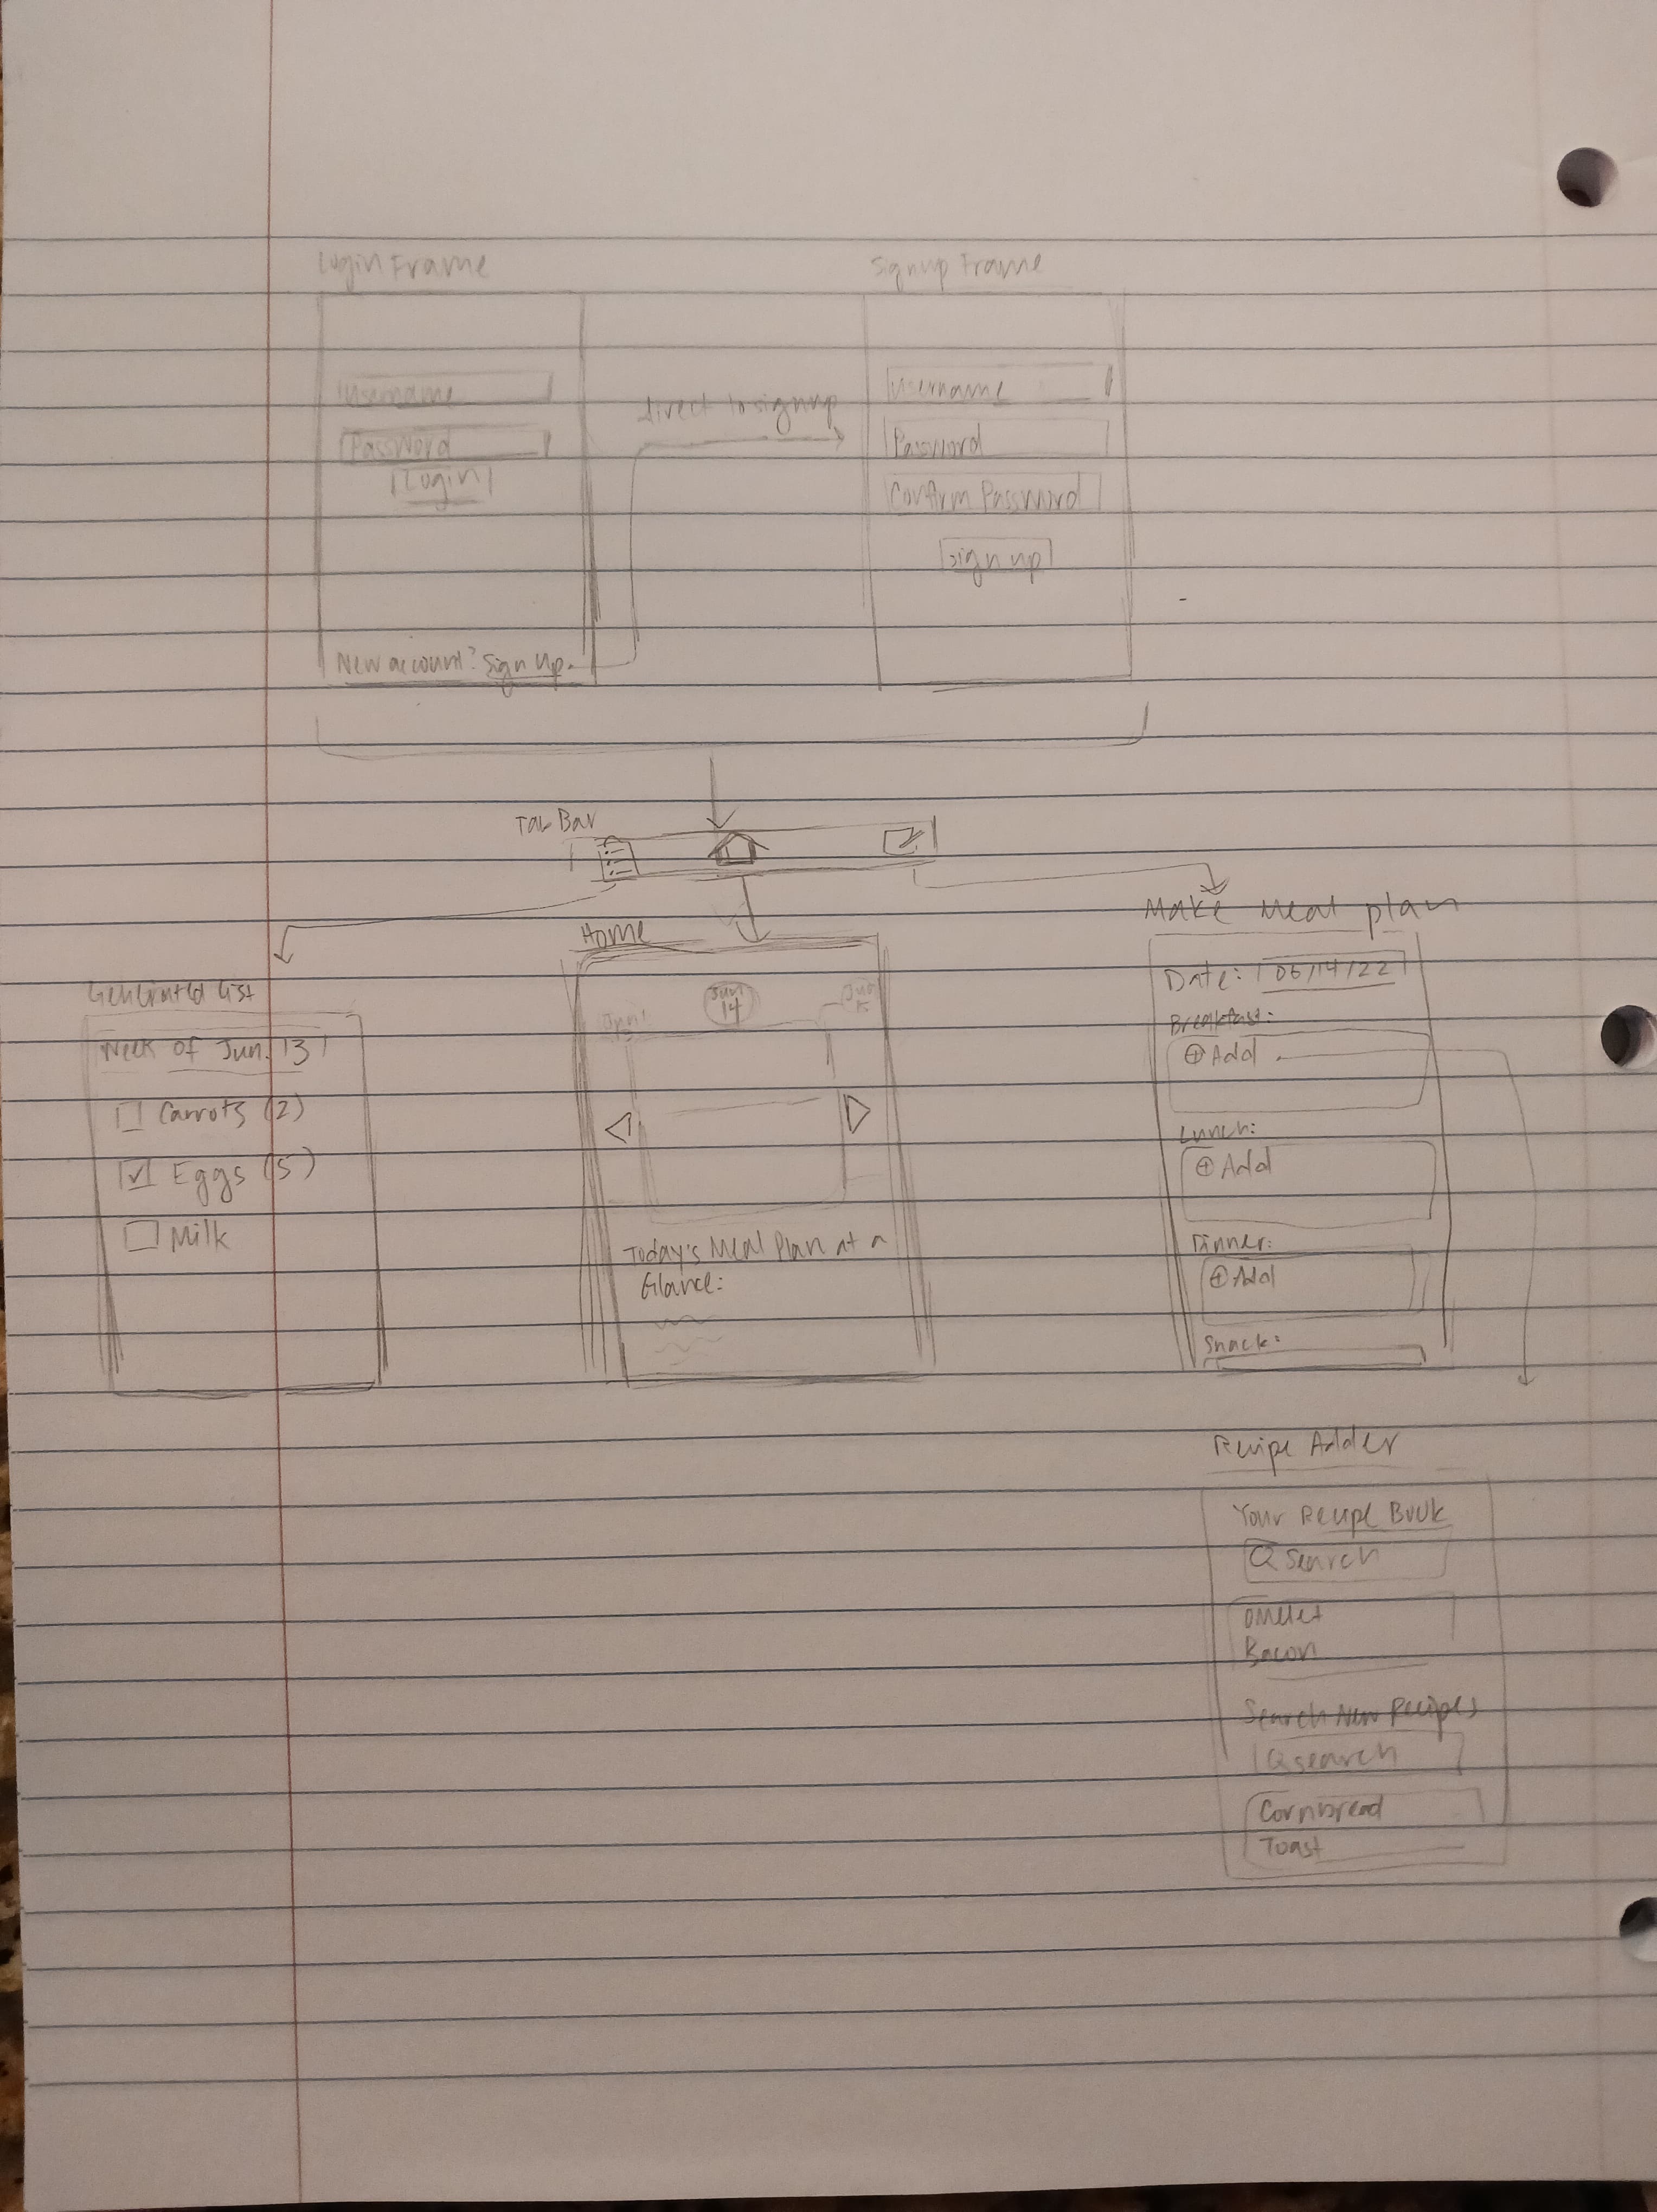 Login Frame
Signup Frame
Username
Password
Login
New account? Sign Up.
direct to signup
Username
Password
Confirm Password
sign up
Tab Bar
Generated List
Week of Jun. 13
Carrots (2)
Eggs (5)
Milk
Home
Jun
14
Today's Meal Plan at a
Glance:
Make Meal plan
Date: 06/14/22
Breakfast:
Add
Lunch:
Add
Dinner:
Add
Snack:
Recipe Adder
Your Recipe Book
Search
Omelet
Bacon
Search New Recipes
search
Cornbread
Toast